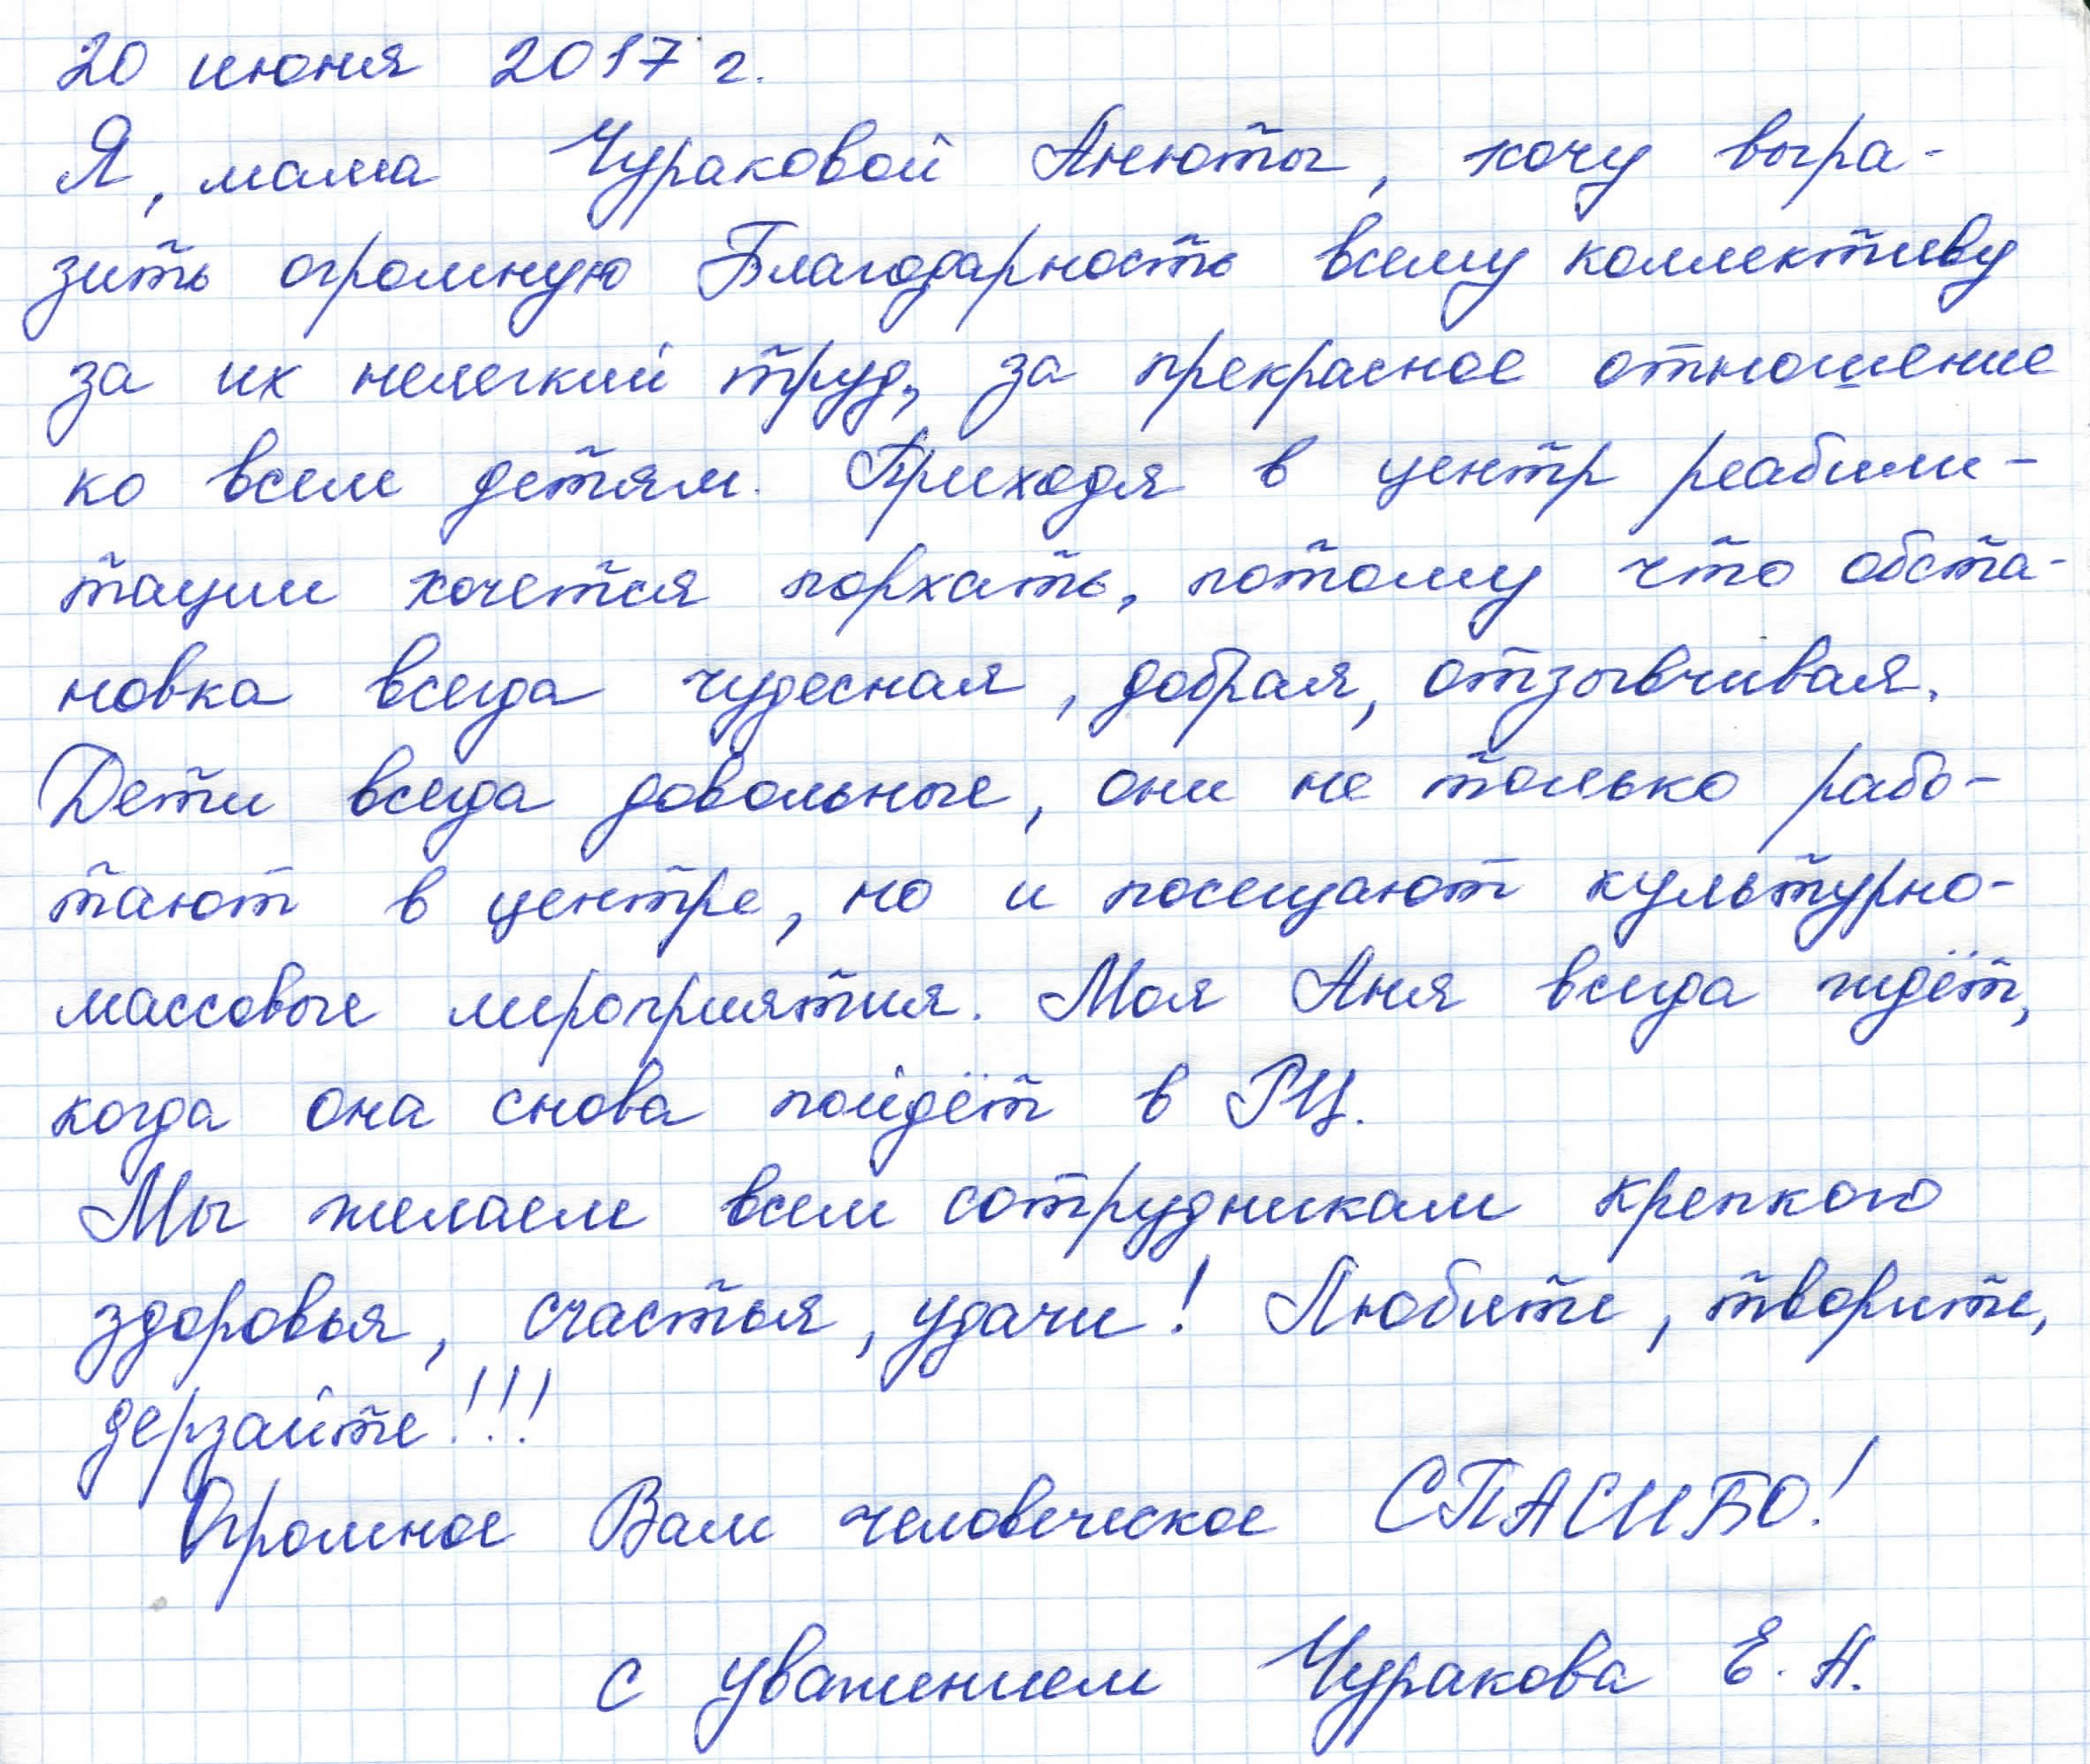 20 июня 2017 г.
Я, мама Чураковой Анюты, хочу выра-
зить огромную Благодарность всему коллективу
за их нелегкий труд, за прекрасное отношение
ко всем детям. Приходя в центр реабили-
тации хочется порхать, потому что обста-
новка всегда чудесная, добрая, отзывчивая.
Дети всегда довольные, они не только рабо-
тают в центре, но и посещают культурно-
массовые мероприятия. Моя Аня всегда ждёт,
когда она снова пойдёт в РЦ.
Мы желаем всем сотрудникам крепкого
здоровья, счастья, удачи! Любите, творите,
дерзайте!!!
Огромное Вам человеческое СПАСИБО!
с уважением Чуракова Е. А.